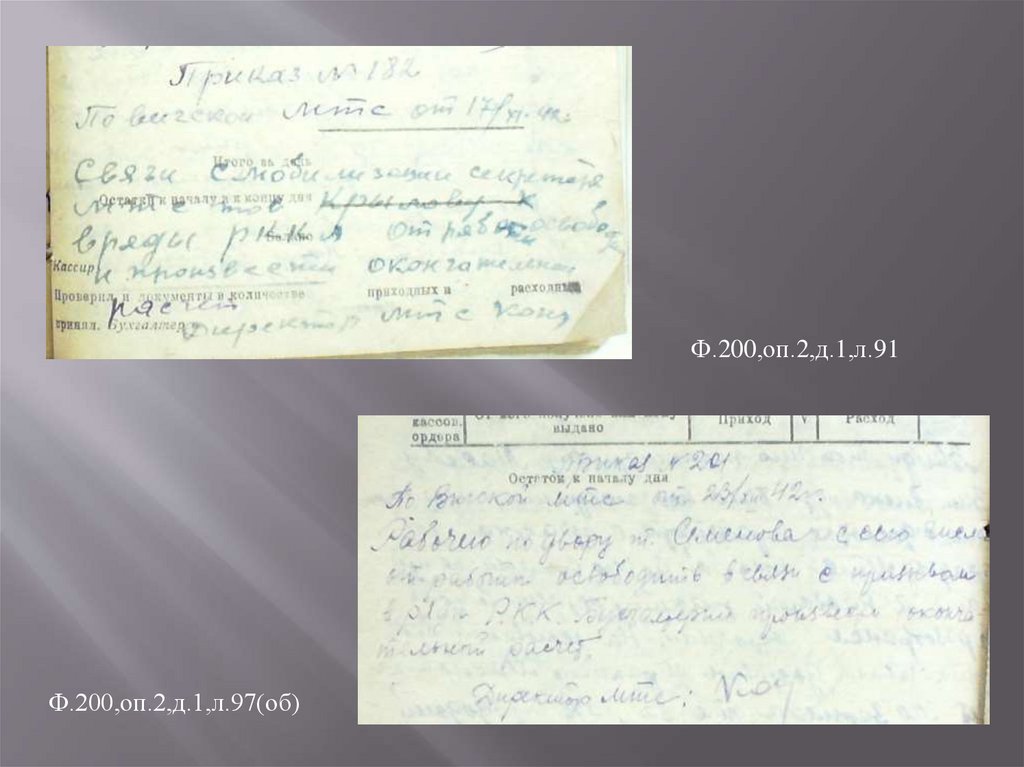 Приказ № 182
По вичской мтс от 17/XI-42г.
Итого за день
Связи с мобилизации секретаря
Остатки к началу и к концу дня
мтс тов Крылову Х
в ряды РККА от работы освобо
Кассир
и произвести окончательный
Проверил и документы в количестве приходных и расходных
расчет
принял. Бухгалтер
Директор мтс
Ф.200,оп.2,д.1,л.91
кассов.
ордера
выдано
Приход V Расход
Приказ № 201
Остаток к началу дня
По Вичской мтс от 23/XII 42г.
Рабочию по двору т. Семенова с сего числа
от работы освободить в связи с призывом
в ряды РКК. Бухгалтерии произвести оконча
тельный расчет.
Директор мтс:
Ф.200,оп.2,д.1,л.97(об)